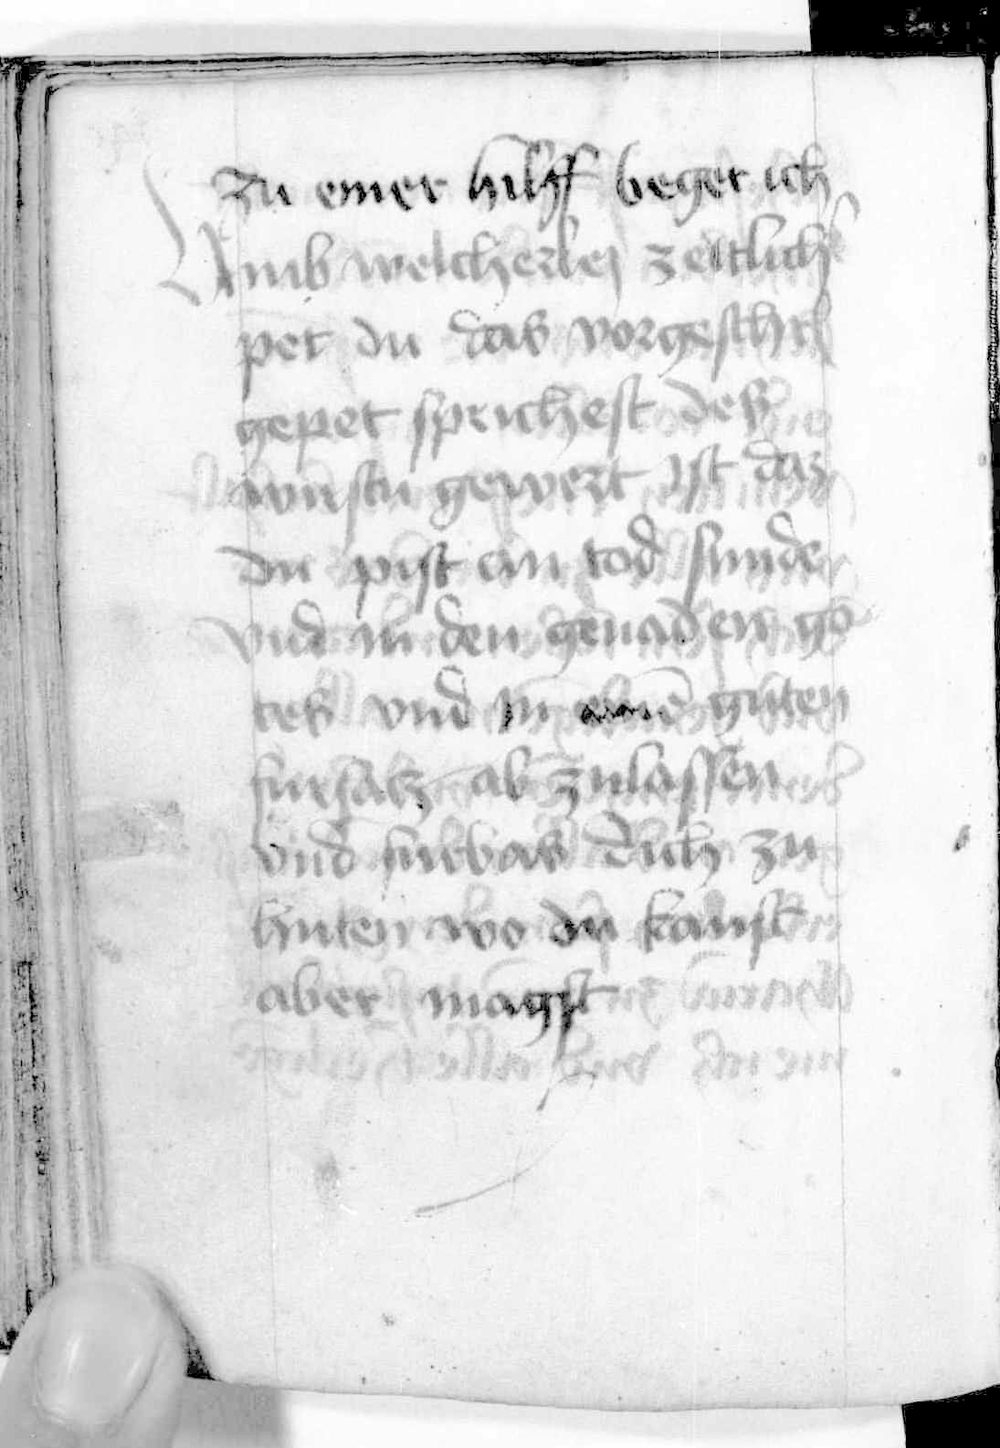 zu einer hilff beger ich
Umb welcherley zeitlich
pet du das vorgeschri
gepet sprichest des
wirstu gewert Ist daz
du pist an tod sunde
vnd in den genaden go
tes vnd in eine guten
fursatz ab zulassen
vnd furbas dich zu
huten wo du kanst
aber magst